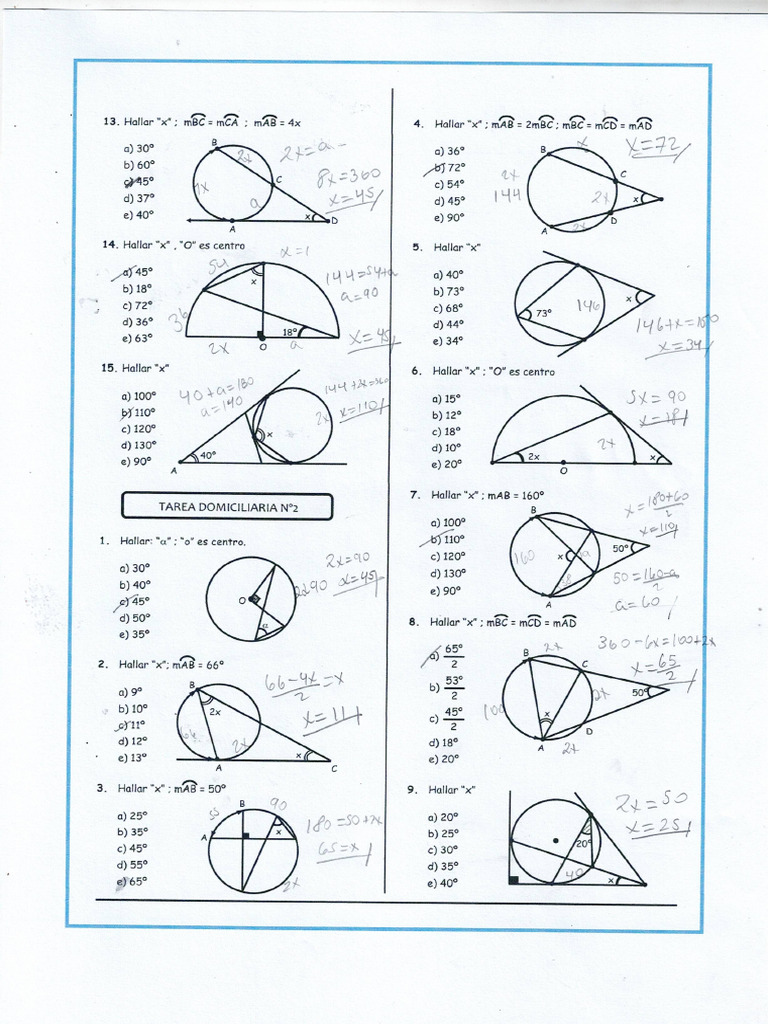 13. Hallar "x" ; mBC = mCA ; mAB = 4x
a) 30º
b) 60º
c) 45º
d) 37º
e) 40º
B
C
A
D
x
2x
a
2x=a
8x=360
x=45
14. Hallar "x" , "O" es centro
a) 45º
b) 18º
c) 72º
d) 36º
e) 63º
54
x
36
18º
2x
O
a
144=54+a
a=90
x=45
15. Hallar "x"
a) 100º
b) 110º
c) 120º
d) 130º
e) 90º
40+a=180
a=140
x
2x
40º
A
x=110
TAREA DOMICILIARIA Nº2
1. Hallar: "α" ; "o" es centro.
a) 30º
b) 40º
c) 45º
d) 50º
e) 35º
O
α
2x=90
x=45
2. Hallar "x"; mAB = 66º
a) 9º
b) 10º
c) 11º
d) 12º
e) 13º
B
2x
66
2x
A
x
C
66-4x/2=x
x=11
3. Hallar "x" ; mAB = 50º
a) 25º
b) 35º
c) 45º
d) 55º
e) 65º
B
A
90
x
2x
180=50+2x
65=x
4. Hallar "x" ; mAB = 2mBC ; mBC = mCD = mAD
a) 36º
b) 72º
c) 54º
d) 45º
e) 90º
x=72
B
C
2x
144
2x
x
D
A
2x
5. Hallar "x"
a) 40º
b) 73º
c) 68º
d) 44º
e) 34º
73º
146
x
146+x=180
x=34
6. Hallar "x" ; "O" es centro
a) 15º
b) 12º
c) 18º
d) 10º
e) 20º
2x
O
2x
x
5x=90
x=18
7. Hallar "x" ; mAB = 160º
a) 100º
b) 110º
c) 120º
d) 130º
e) 90º
B
160
x
50º
A
x=160+60/2
x=110
50=160-a/2
a=60
8. Hallar "x" ; mBC = mCD = mAD
a) 65º/2
b) 53º/2
c) 45º/2
d) 18º
e) 20º
B
2x
C
100
x
2x
50º
D
A
2x
360-6x=100+2x
x=65/2
9. Hallar "x"
a) 20º
b) 25º
c) 30º
d) 35º
e) 40º
20º
40
x
2x=50
x=25